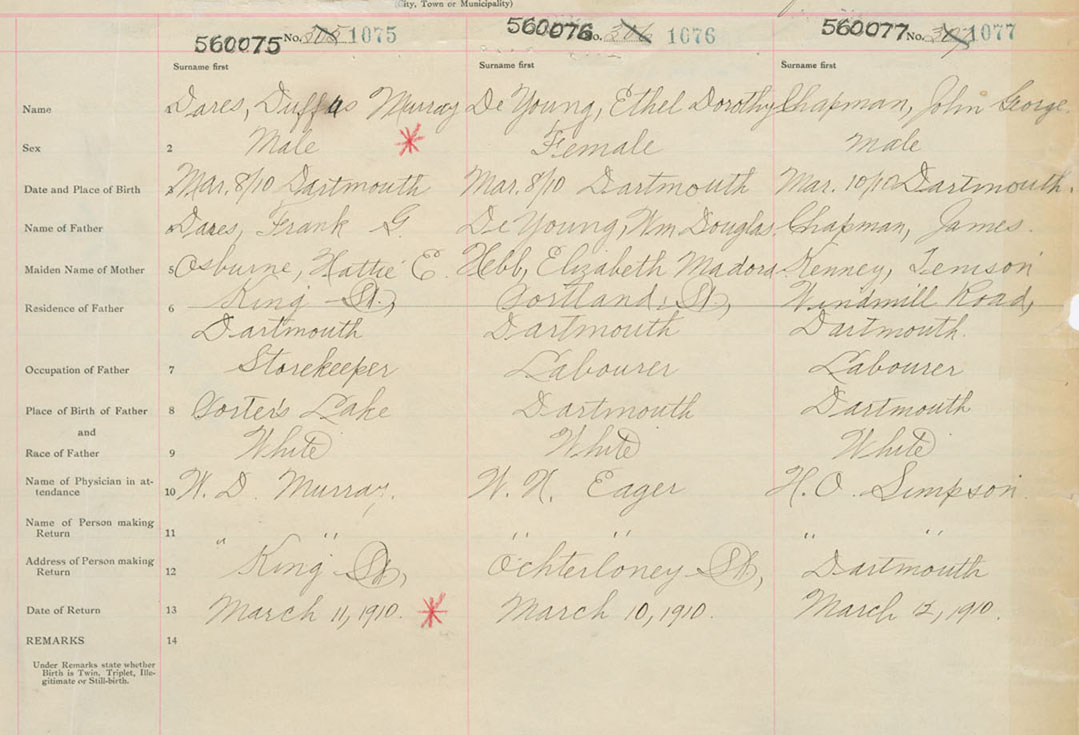 (City, Town or Municipality)
560075 No. 1075 560076 No. 1076 560077 No. 1077
Surname first Surname first Surname first
Name 1 Dares, Duffus Murray De Young, Ethel Dorothy Chapman, John George.
Sex 2 Male Female Male
Date and Place of Birth 3 Mar. 8/10 Dartmouth Mar. 8/10 Dartmouth Mar. 10/10 Dartmouth.
Name of Father 4 Dares, Frank G. De Young, Wm Douglas. Chapman, James.
Maiden Name of Mother 5 Osburne, Hattie E. Hebb, Elizabeth Madora. Kenney, Tenison
King St., Portland, St., Windmill Road,
Residence of Father 6
Dartmouth Dartmouth Dartmouth.
Occupation of Father 7 Storekeeper Labourer Labourer
Place of Birth of Father 8 Porter's Lake Dartmouth Dartmouth
and
Race of Father 9 White White White
Name of Physician in at-
tendance 10 W. D. Murray. W. H. Eager H. O. Simpson.
Name of Person making
Return 11 " " " " " "
Address of Person making
Return 12 King St., Ochterloney St., Dartmouth
Date of Return 13 March 11, 1910. March 10, 1910. March 12, 1910.
REMARKS 14
Under Remarks state whether
Birth is Twin, Triplet, Ille-
gitimate or Still-birth.